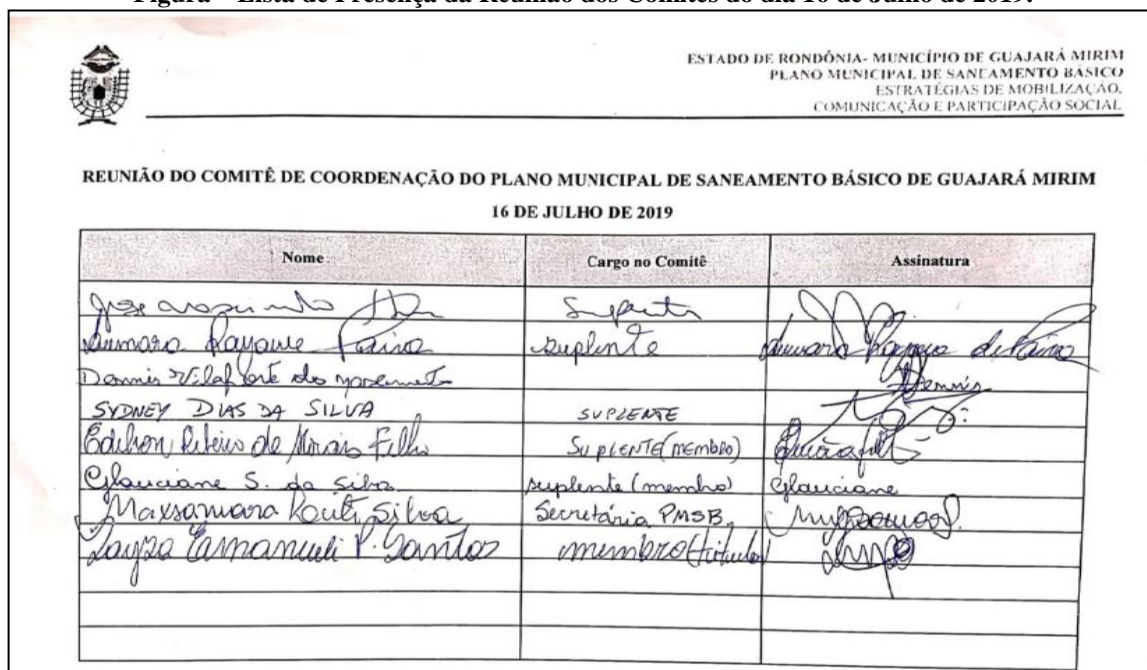 Figura – Lista de Presença da Reunião dos Comitês do dia 16 de Julho de 2019.
ESTADO DE RONDÔNIA- MUNICÍPIO DE GUAJARÁ MIRIM
PLANO MUNICIPAL DE SANEAMENTO BÁSICO
ESTRATÉGIAS DE MOBILIZAÇÃO,
COMUNICAÇÃO E PARTICIPAÇÃO SOCIAL
REUNIÃO DO COMITÊ DE COORDENAÇÃO DO PLANO MUNICIPAL DE SANEAMENTO BÁSICO DE GUAJARÁ MIRIM
16 DE JULHO DE 2019
Nome Cargo no Comitê Assinatura
Suplente
Rayane Paiva suplente Paiva
Dennis do Dennis
SYDNEY DIAS DA SILVA SUPLENTE
Ribeiro de Morais Filho SUPLENTE (MEMBRO)
Glauciane S. da Silva suplente (membro) Glauciane
Maxsamara Silva Secretária PMSB
Emanueli P. Santos membro (titular)